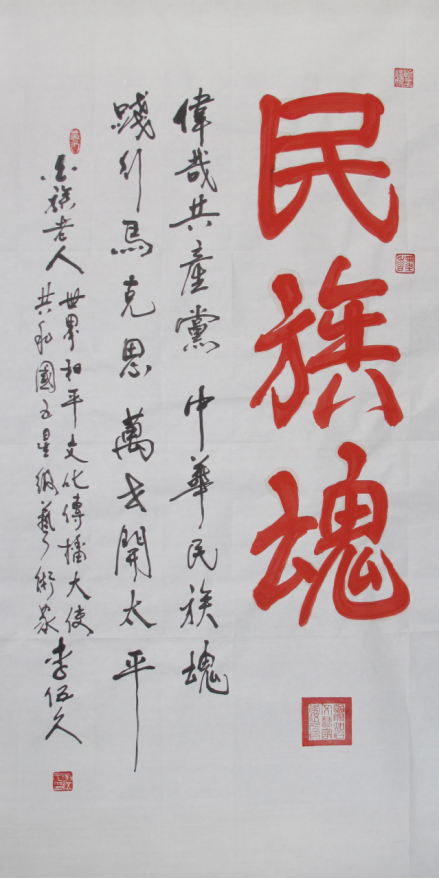 民族魂
偉哉共產黨 中華民族魂
踐行馬克思 萬世開太平
世界和平文化傳播大使
共和國五星級藝術家
老人 李伍久